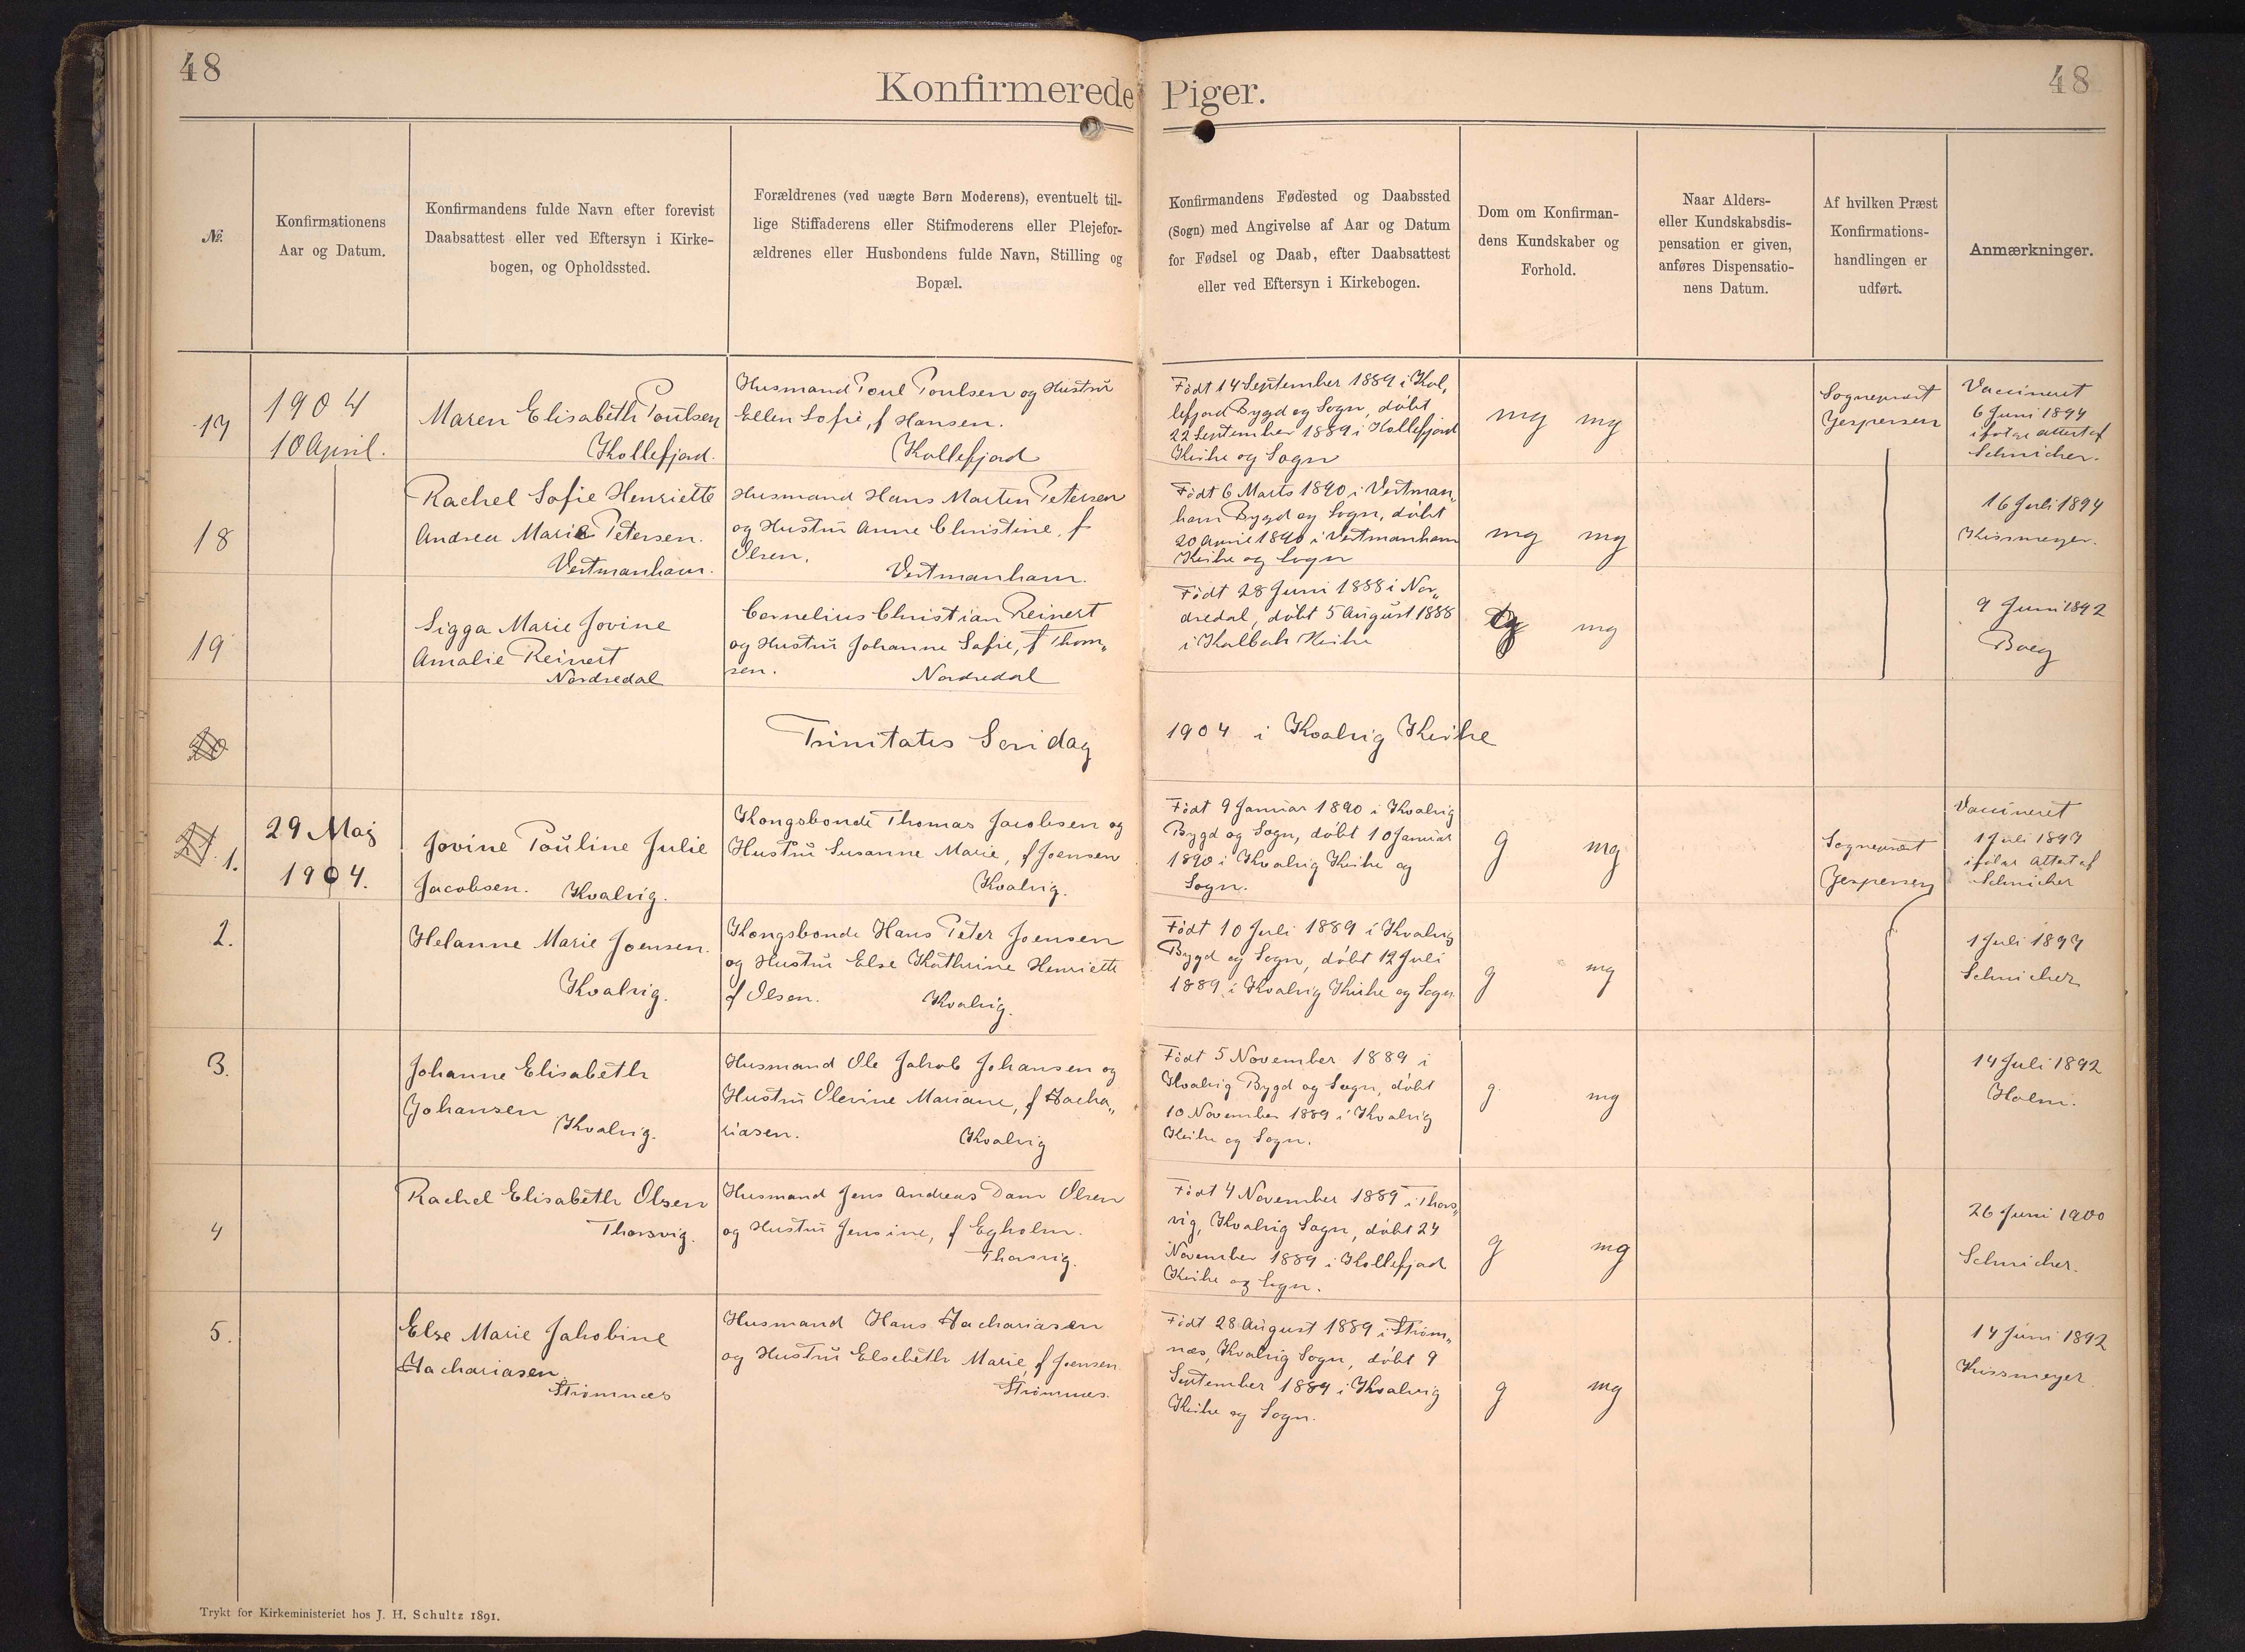 48
Konfirmerede Piger.
48
№
Konfirmationens
Aar og Datum.
Konfirmandens fulde Navn efter forevist
Daabsattest eller ved Eftersyn i Kirke-
bogen, og Opholdssted.
Forældrenes (ved uægte Børn Moderens), eventuelt til-
lige Stiffaderens eller Stifmoderens eller Plejefor-
ældrenes eller Husbondens fulde Navn, Stilling og
Bopæl.
Konfirmandens Fødested og Daabssted
(Sogn) med Angivelse af Aar og Datum
for Fødsel og Daab, efter Daabsattest
eller ved Eftersyn i Kirkebogen.
Dom om Konfirman-
dens Kundskaber og
Forhold.
Naar Alders-
eller Kundskabsdis-
pensation er given,
anføres Dispensatio-
nens Datum.
Af hvilken Præst
Konfirmations-
handlingen er
udført.
Anmærkninger.
17
1904
10 April.
Maren Elisabeth Poulsen
Kollefjord.
Husmand Poul Poulsen og Hustru
Ellen Sofie, f Hansen.
Kollefjord
Födt 14 September 1889 i Kol„
lefjord Bygd og Sogn, döbt
22 September 1889 i Kollefjord
Kirke og Sogn
mg mg
Sognepræst
Jespersen
Vaccineret
6 Juni 1894
ifölge attest af
Schnicker.
18
Rachel Sofie Henriette
Andrea Marie Petersen.
Vestmanhavn.
Husmand Hans Morten Petersen
og Hustru Anne Christine, f
Olsen.
Vestmanhavn.
Födt 6 Marts 1890 i Vestman„
havn Bygd og Sogn, döbt
20 April 1890 i Vestmanhavn
Kirke og Sogn
mg mg
16 Juli 1894
Kissmeyer.
19
Sigga Marie Jovine
Amalie Reinert
Nordredal
Cornelius Christian Reinert
og Hustru Johanne Sofie, f Thom„
sen.
Nordredal
Födt 28 Juni 1888 i Nor„
dredal, döbt 5 August 1888
i Kalbak Kirke
tg mg
9 Juni 1892
Boeg
20
Trinitatis Søndag
1904 i Kvalvig Kirke
21. 1.
29 Maj
1904.
Jovine Pouline Julie
Jacobsen. Kvalvig.
Kongsbonde Thomas Jacobsen og
Hustru Susanne Marie, f Joensen
Kvalvig.
Födt 9 Januar 1890 i Kvalvig
Bygd og Sogn, döbt 10 Januar
1890 i Kvalvig Kirke og
Sogn.
g mg
Sognepræst
Jespersen
Vaccineret
1 Juli 1897
ifölge Attest af
Schnicker
2.
Helanne Marie Joensen.
Kvalvig.
Kongsbonde Hans Peter Joensen
og Hustru Else Kathrine Henriette
f Olsen. Kvalvig.
Födt 10 Juli 1889 i Kvalvig
Bygd og Sogn, döbt 12 Juli
1889 i Kvalvig Kirke og Sogn
g mg
1 Juli 1897
Schnicker
3.
Johanne Elisabeth
Johansen
Kvalvig.
Husmand Ole Jakob Johansen og
Hustru Olevine Mariane, f Zacha„
riasen.
Kvalvig
Födt 5 November 1889 i
Kvalvig Bygd og Sogn, döbt
10 November 1889 i Kvalvig
Kirke og Sogn.
g mg
14 Juli 1892
Holm.
4
Rachel Elisabeth Olsen
Thorsvig.
Husmand Jens Andreas Dam Olsen
og Hustru Jensine, f Egholm.
Thorsvig.
Födt 4 November 1889 i Thors„
vig, Kvalvig Sogn, döbt 24
November 1889 i Kollefjord
Kirke og Sogn.
g mg
26 Juni 1900
Schnicker.
5.
Else Marie Jakobine
Zachariasen
Strömnæs
Husmand Hans Zachariasen
og Hustru Elsebeth Marie, f Joensen
Strömnæs.
Födt 28 August 1889 i Ström„
næs, Kvalvig Sogn, döbt 9
September 1889 i Kvalvig
Kirke og Sogn.
g mg
14 Juni 1892
Kissmeyer.
Trykt for Kirkeministeriet hos J. H. Schultz 1891.